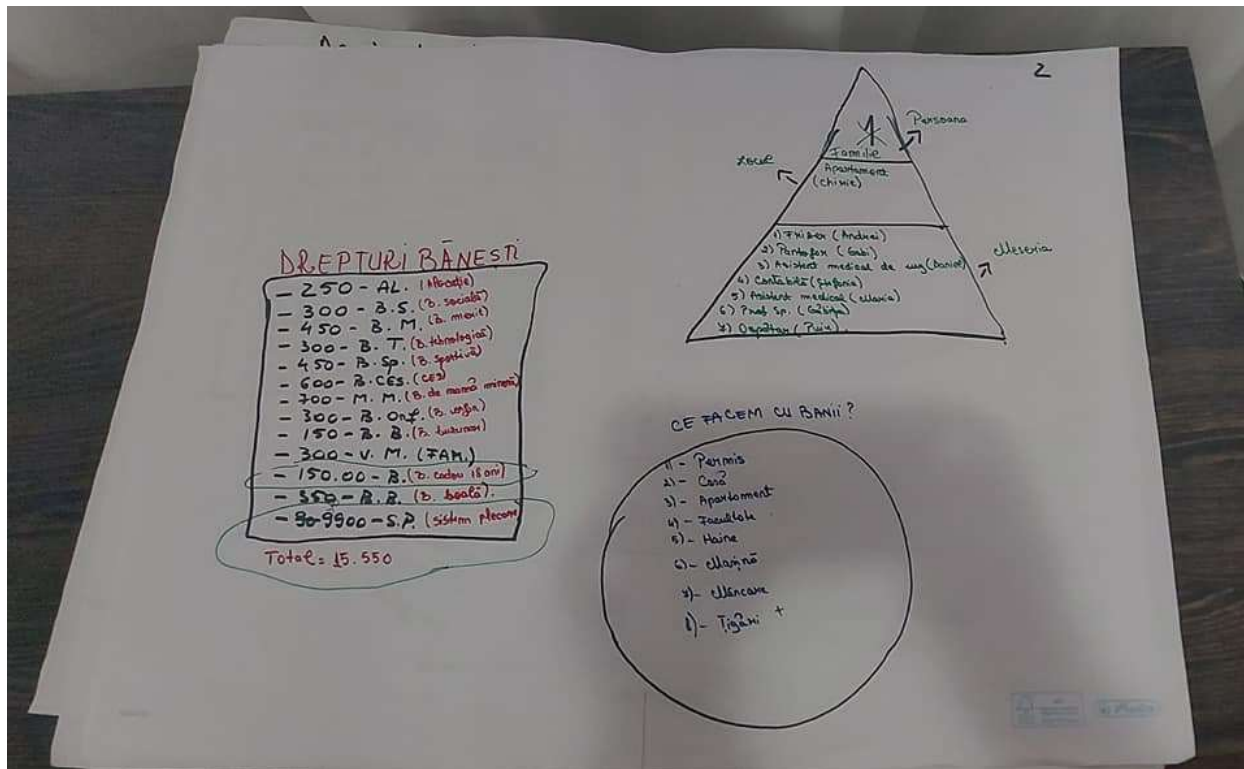 2
DREPTURI BĂNEȘTI
- 250 - AL. (Alocație)
- 300 - B.S. (B. socială)
- 450 - B. M. (B. merit)
- 300 - B. T. (B. tehnologică)
- 450 - B. Sp. (B. sportivă)
- 600 - B. CES. (CES)
- 700 - M. M. (B. de mamă minoră)
- 300 - B. Orf. (B. orfan)
- 150 - B. B. (B. buzunar)
- 300 - V. M. (FAM.)
- 150.00 - B. (B. cadou 18 ani)
- 350 - B. B. (B. boală).
- 9900 - S.P. (sistem plecare)
Total = 15.550
Persoana
Familie
Locul
Apartament
(chirie)
Meseria
1) Frizer (Andrei)
2) Pantofar (Gabi)
3) Asistent medical de (Daniel)
4) Contabilă (Ștefania)
5) Asistent medical (Maria)
6) Prof Sp. (
7) Ospătar (Puiu).
CE FACEM CU BANII?
1) - Permis
2) - Casă
3) - Apartament
4) - Facultate
5) - Haine
6) - Mașină
7) - Mâncare
8) - Țigări +